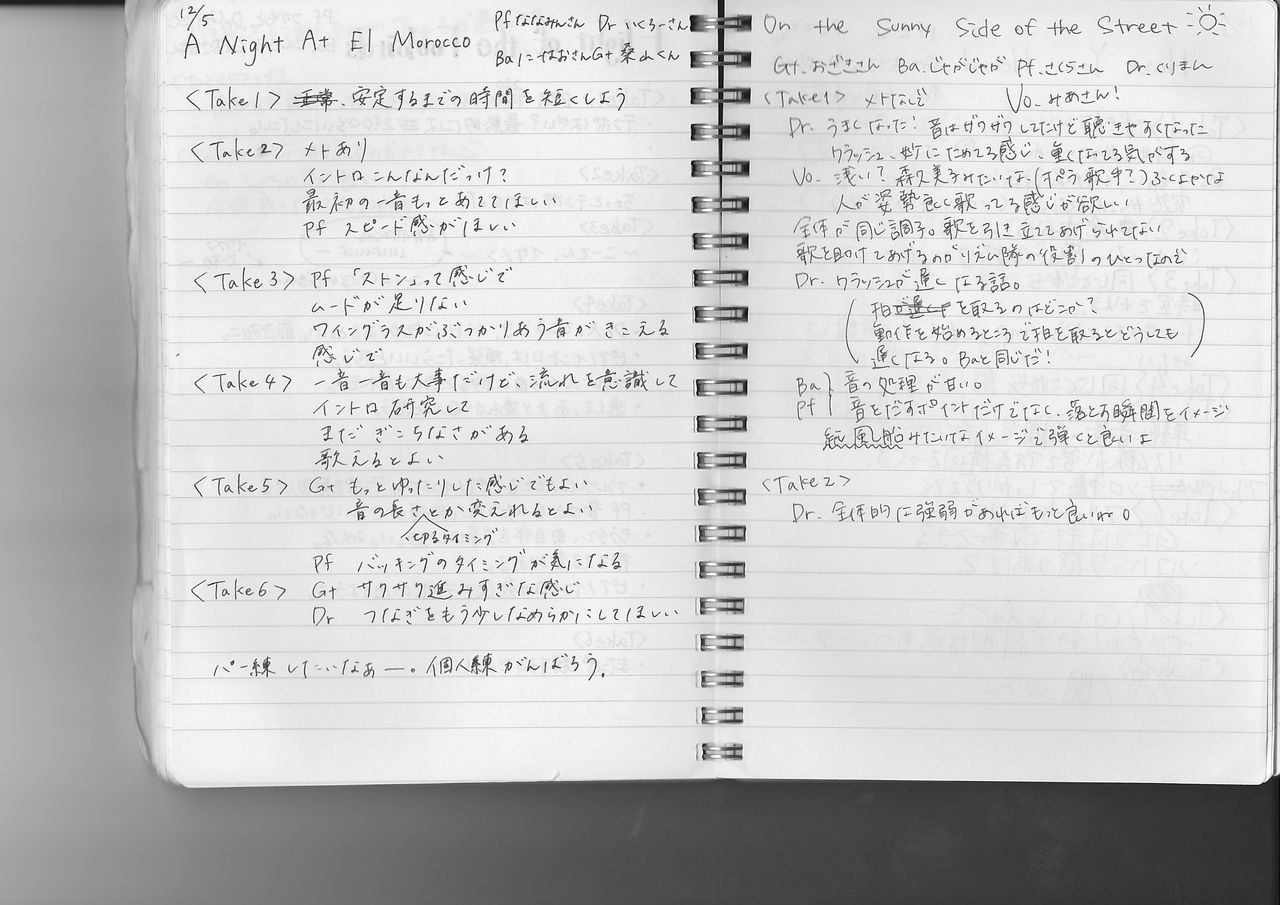 12/5
A Night At El Morocco
Pf ななみんさん Dr いくろーさん
Ba にせおさん Gt 桑山くん
<Take1> 安定するまでの時間を短くしよう
<Take2> メトあり
イントロこんなんだっけ?
最初の一音もっとあててほしい
Pf スピード感がほしい
<Take3> Pf 「ストン」って感じで
ムードが足りない
ワイングラスがぶつかりあう音がきこえる
感じで
<Take4> 一音一音も大事だけど、流れを意識して
イントロ研究して
まだぎこちなさがある
歌えるとよい
<Take5> Gt もっとゆったりした感じでもよい
音の長さとか変えれるとよい
切るタイミング
Pf バッキングのタイミングが気になる
<Take6> Gt サクサク進みすぎな感じ
Dr つなぎをもう少しなめらかにしてほしい
パー練したいなぁー。個人練がんばろう。
On the Sunny Side of the Street
Gt. おざささん Ba. じゃがじゃが Pf. さくらさん Dr. くりまん
<Take1> メトなしで Vo. みあさん!
Dr. うまくなった!音はザクザクしてたけど聴きやすくなった
クラッシュ、妙にためてる感じ、重くなってる気がする
Vo. 浅い?森久美子みたいな、(オペラ歌手?)ふくよかな
人が姿勢良く歌ってる感じが欲しい
全体が同じ調子。歌を引き立ててあげられてない
歌を助けてあげるのがリズム隊の役割のひとつなので
Dr. クラッシュが遅くなる話。
拍を取るのはどこか?
動作を始めるところで拍を取るとどうしても
遅くなる。Baと同じだ!
Ba 音の処理が甘い。
Pf 音をだすポイントだけでなく、落とす瞬間をイメージ
紙風船みたいなイメージで弾くと良いよ
<Take2>
Dr. 全体的に強弱があればもっと良いね。